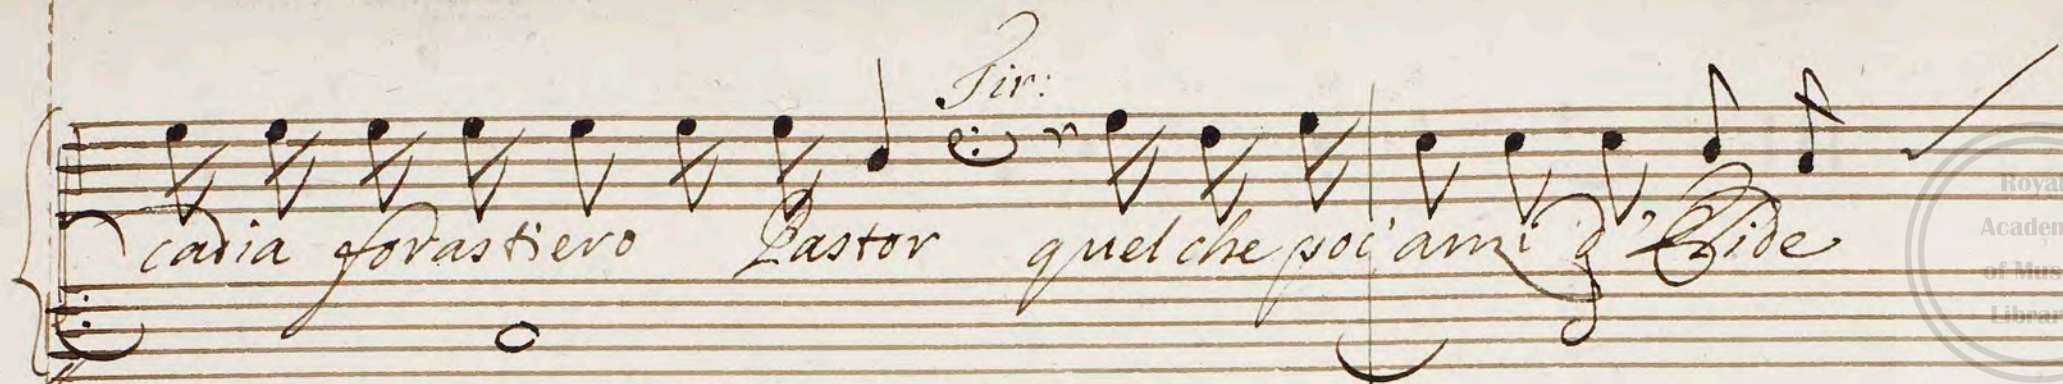 Tir:
cadia forastiero Pastor quel che poi ami d'Elide
Royal
Academy
of Music
Library